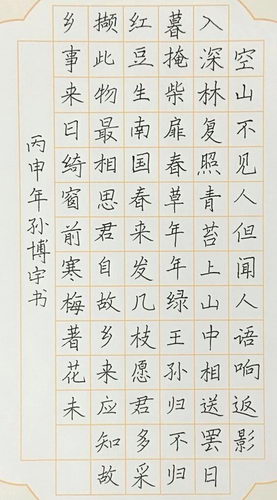 空山不见人但闻人语响返影
入深林复照青苔上山中相送罢日
暮掩柴扉春草年年绿王孙归不归
红豆生南国春来发几枝愿君多采
撷此物最相思君自故乡来应知故
乡事来日绮窗前寒梅著花未
丙申年孙博宇书